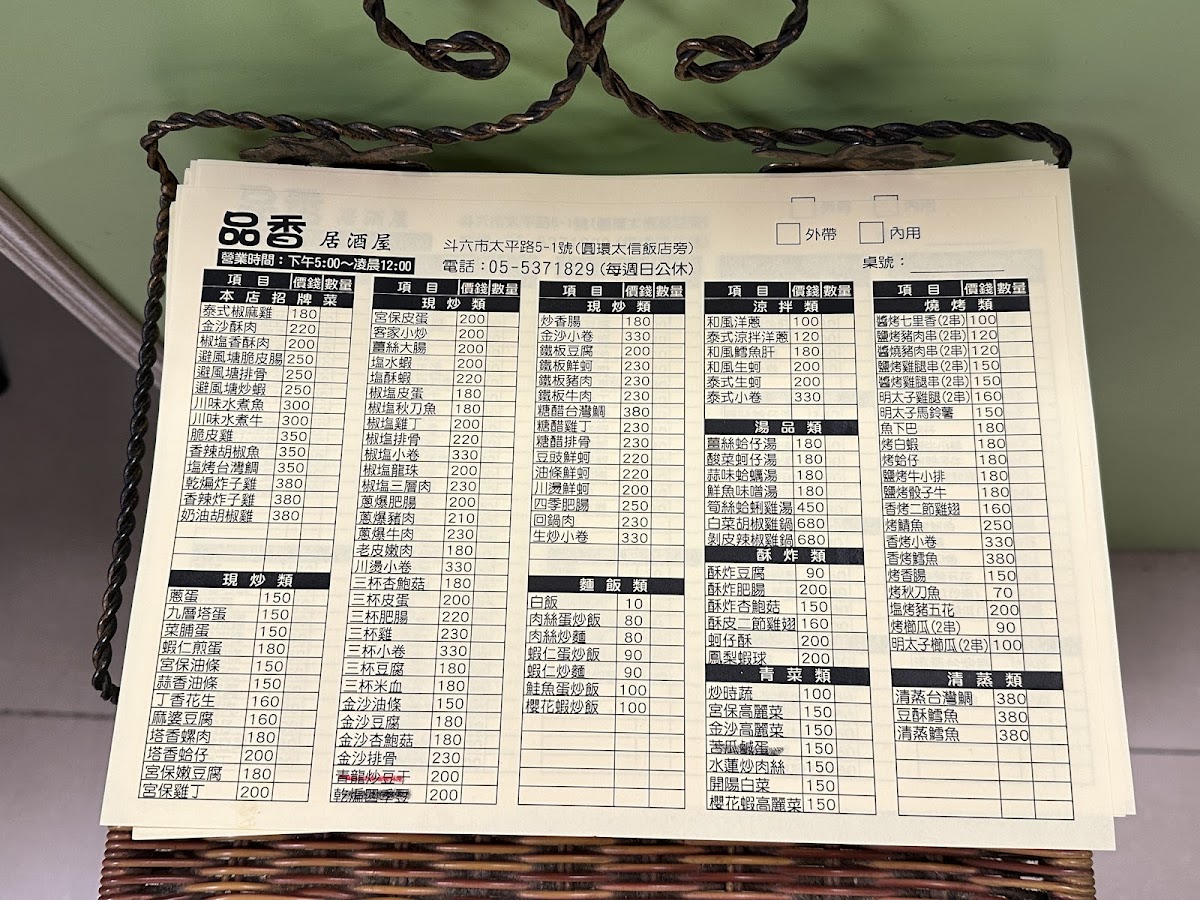 品香 居酒屋
營業時間：下午5:00～凌晨12:00
斗六市太平路5-1號(圓環太信飯店旁)
電話：05-5371829(每週日公休)
外帶 內用
桌號：
項目 價錢 數量
本店招牌菜
泰式椒麻雞 180
金沙酥肉 220
椒塩香酥肉 200
避風塘脆皮腸 250
避風塘排骨 250
避風塘炒蝦 250
川味水煮魚 300
川味水煮牛 300
脆皮雞 350
香辣胡椒魚 350
塩烤台灣鯛 350
乾煸炸子雞 380
香辣炸子雞 380
奶油胡椒雞 380
現炒類
蔥蛋 150
九層塔蛋 150
菜脯蛋 150
蝦仁煎蛋 180
宮保油條 150
蒜香油條 150
丁香花生 160
麻婆豆腐 160
塔香螺肉 180
塔香蛤仔 200
宮保嫩豆腐 180
宮保雞丁 200
項目 價錢 數量
現炒類
宮保皮蛋 200
客家小炒 200
薑絲大腸 200
塩水蝦 200
塩酥蝦 220
椒塩皮蛋 180
椒塩秋刀魚 180
椒塩雞丁 200
椒塩排骨 220
椒塩小卷 330
椒塩龍珠 200
椒塩三層肉 230
蔥爆肥腸 200
蔥爆豬肉 210
蔥爆牛肉 230
老皮嫩肉 180
川燙小卷 330
三杯杏鮑菇 180
三杯皮蛋 200
三杯肥腸 220
三杯雞 230
三杯小卷 330
三杯豆腐 180
三杯米血 180
金沙油條 150
金沙豆腐 180
金沙杏鮑菇 180
金沙排骨 230
青龍炒豆丁 200
乾煸四季豆 200
項目 價錢 數量
現炒類
炒香腸 180
金沙小卷 330
鐵板豆腐 200
鐵板鮮蚵 230
鐵板豬肉 230
鐵板牛肉 230
糖醋台灣鯛 380
糖醋雞丁 230
糖醋排骨 230
豆豉鮮蚵 220
油條鮮蚵 220
川燙鮮蚵 200
四季肥腸 250
回鍋肉 230
生炒小卷 330
麵飯類
白飯 10
肉絲蛋炒飯 80
肉絲炒麵 80
蝦仁蛋炒飯 90
蝦仁炒麵 90
鮭魚蛋炒飯 100
櫻花蝦炒飯 100
項目 價錢 數量
涼拌類
和風洋蔥 100
泰式涼拌洋蔥 120
和風鱈魚肝 180
和風生蚵 200
泰式生蚵 200
泰式小卷 330
湯品類
薑絲蛤仔湯 180
酸菜蚵仔湯 180
蒜味蛤蠣湯 180
鮮魚味噌湯 180
筍絲蛤蜊雞湯 450
白菜胡椒雞鍋 680
剝皮辣椒雞鍋 680
酥炸類
酥炸豆腐 90
酥炸肥腸 200
酥炸杏鮑菇 150
酥皮二節雞翅 160
蚵仔酥 200
鳳梨蝦球 200
青菜類
炒時蔬 100
宮保高麗菜 150
金沙高麗菜 150
苦瓜鹹蛋 150
水蓮炒肉絲 150
開陽白菜 150
櫻花蝦高麗菜 150
項目 價錢 數量
燒烤類
醬烤七里香(2串) 100
鹽烤豬肉串(2串) 120
醬燒豬肉串(2串) 120
鹽烤雞腿串(2串) 150
醬烤雞腿串(2串) 150
明太子雞腿(2串) 160
明太子馬鈴薯 150
魚下巴 180
烤白蝦 180
烤蛤仔 180
鹽烤牛小排 180
鹽烤骰子牛 180
香烤二節雞翅 160
烤鯖魚 250
香烤小卷 330
香烤鱈魚 380
烤香腸 150
烤秋刀魚 70
塩烤豬五花 200
烤櫛瓜(2串) 90
明太子櫛瓜(2串) 100
清蒸類
清蒸台灣鯛 380
豆酥鱈魚 380
清蒸鱈魚 380